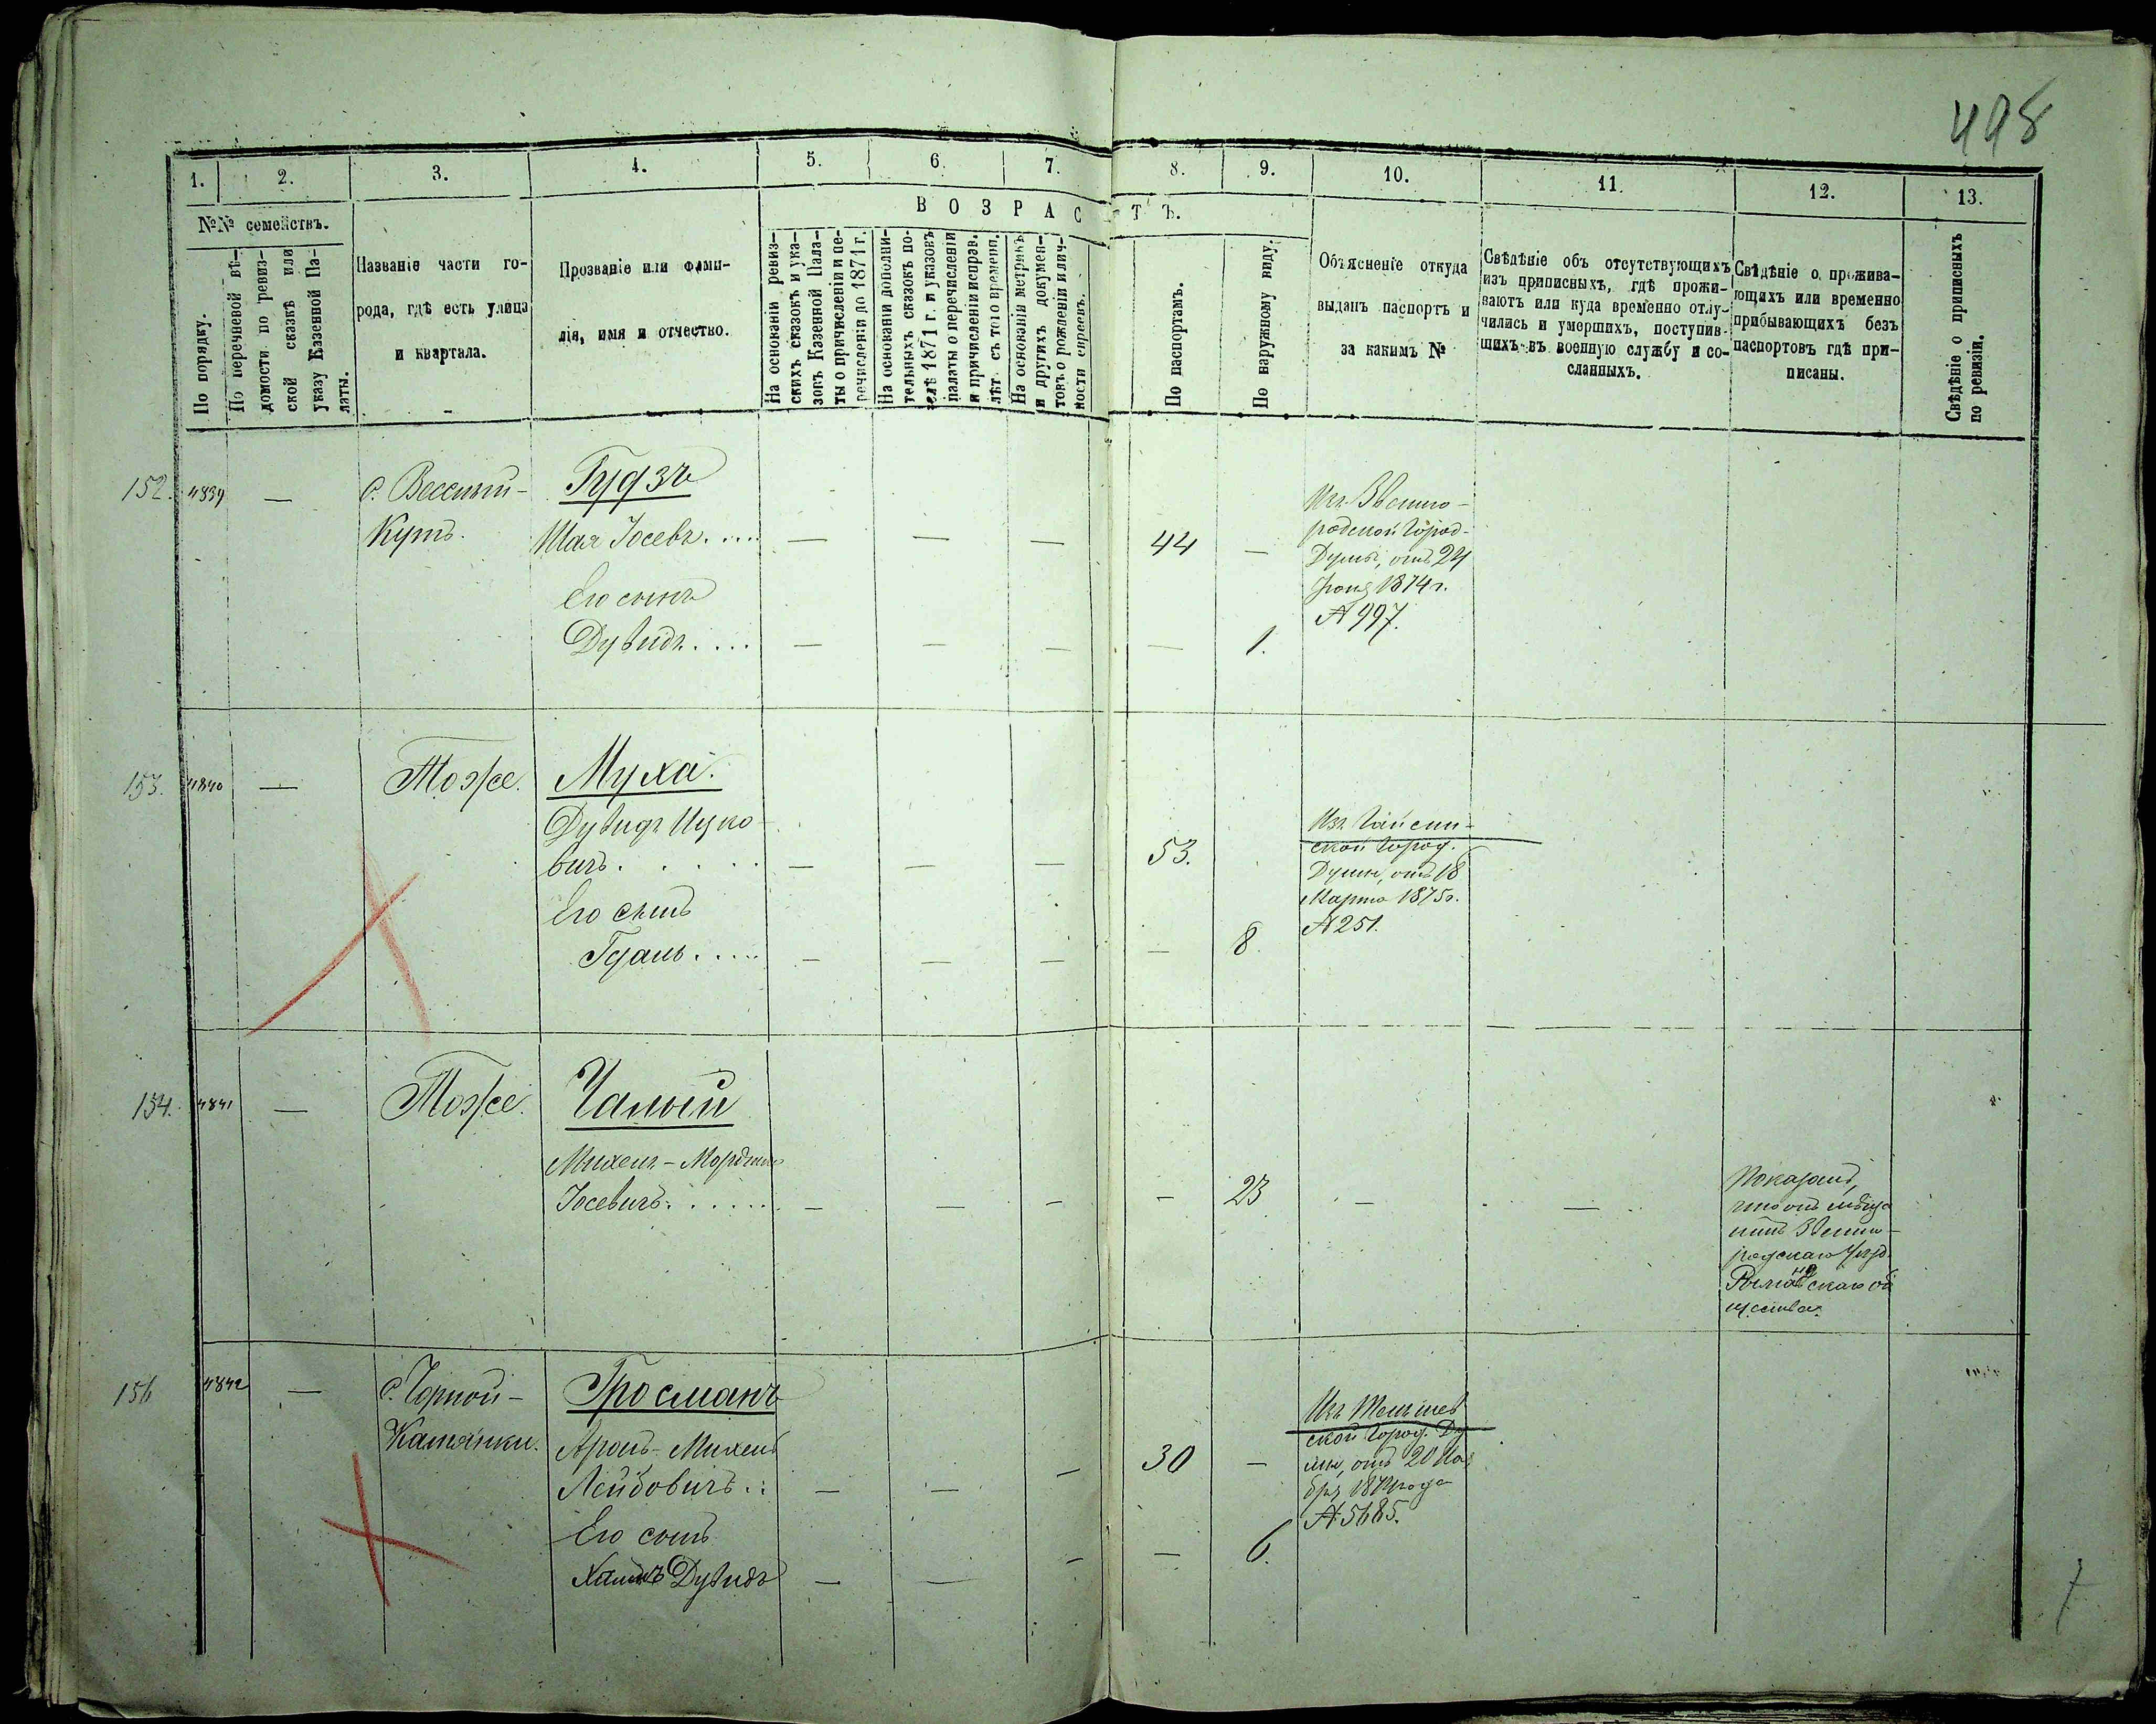 498
1. 2. 3. 4. 5. 6. 7. 8. 9. 10. 11. 12. 13.
№№ семействъ.
По порядку.
По перечневой вѣ-
домости по ревиз-
ской сказкѣ или
указу Казенной Па-
латы.
Названіе части го-
рода, гдѣ есть улица
и квартала.
Прозваніе или фами-
лія, имя и отчество.
ВОЗРАСТЪ.
На основаніи ревиз-
скихъ сказокъ и ука-
зовъ Казенной Пала-
ты о причисленіи и пе-
речисленіи до 1871 г.
На основаніи дополни-
тельныхъ сказокъ по-
слѣ 1871 г. и указовъ
палаты о перечисленіи
и причисленіи исправ.
лѣт. съ того времени.
На основаніи метрикъ
и другихъ докумен-
товъ о рожденіи и лич-
ности евреевъ.
По паспортамъ.
По наружному виду.
Объясненіе откуда
выданъ паспортъ и
за какимъ №
Свѣдѣніе объ отсутствующихъ
изъ приписныхъ, гдѣ прожи-
ваютъ или куда временно отлу-
чились и умершихъ, поступив-
шихъ въ военную службу и со-
сланныхъ.
Свѣдѣніе о прожива-
ющихъ или временно
прибывающихъ безъ
паспортовъ гдѣ при-
писаны.
Свѣдѣніе о приписныхъ
по ревизіи.
152. 4839 — с. Веселый- Гудзъ
Кутъ. Шая Іосевъ..... — — — 44 —
Его сынъ
Дувидъ.... — — — — 1.
Изъ Звенино-
родской Город.
Думы, отъ 24
Іюня 1874 г.
№ 997.
153. 4840 — Тоже. Муха.
Дувидъ Ицко-
вичъ. . . . . . — — — 53.
Его сынъ
Гдаль..... — — — — 8.
Изъ Гайсин-
ской Город.
Думы, отъ 18
Марта 1875 г.
№ 251.
154. 4841 — Тоже. Чалый
Михель-Мордко
Іосевичъ....... — — — — 23 — —
Показалъ,
что онъ мѣща
нинъ Звенино-
родскаго Уѣзд.
скаго об
щества.
156 4842 — с. Чорной- Гросманъ
Камянки. Аронъ-Михель
Лейбовичъ.. — — — 30 —
Его сынъ
Хаимъ Дувидъ — — — — 6.
Изъ
ской Город. Ду
мы, отъ 20 Ноя
бря 1874 года
№ 5685.